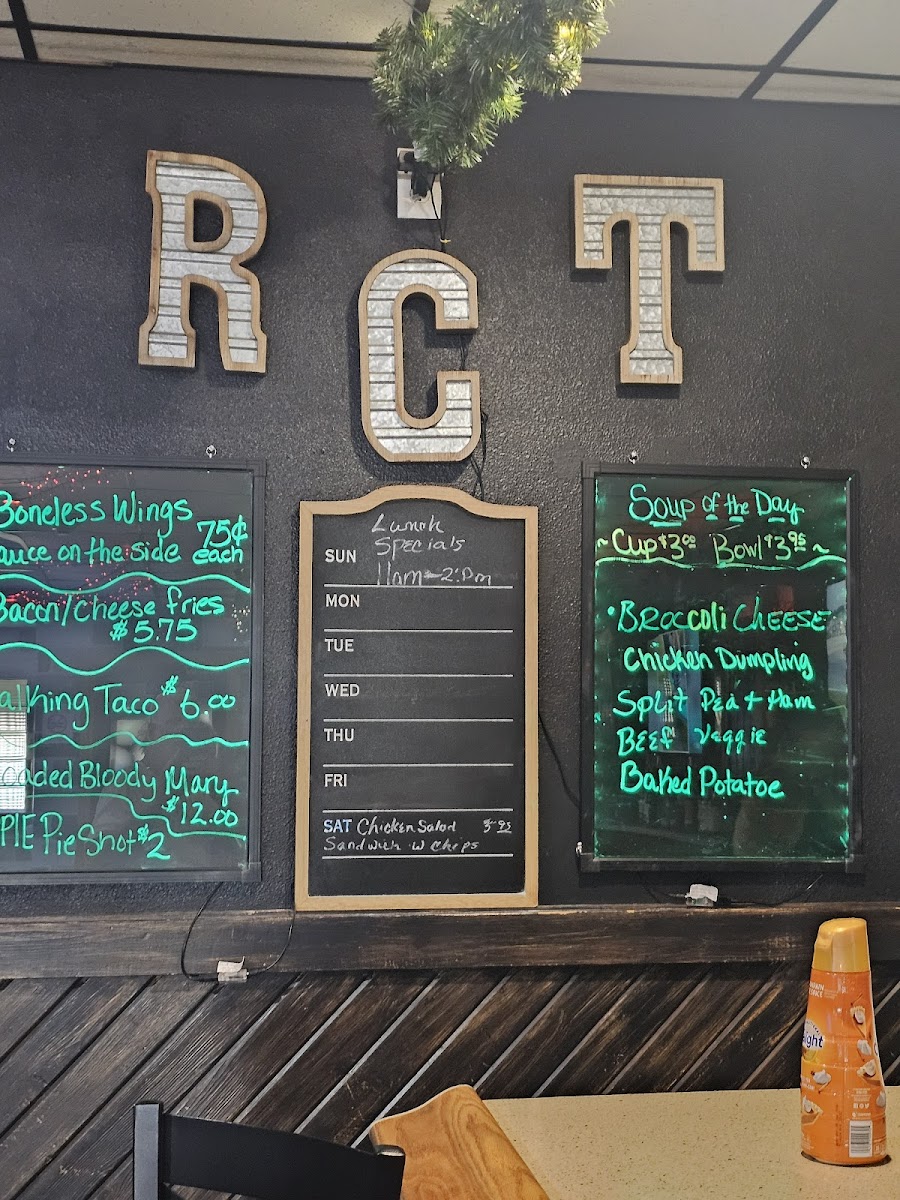 R
C
T
Boneless Wings
auce on the side 75¢ each
Bacon/Cheese fries
$5.75
alking Taco $6.00
oaded Bloody Mary
$12.00
PIE Pie Shot $2
Lunch
Specials
SUN
11am-2:pm
MON
TUE
WED
THU
FRI
SAT Chicken Salad
Sandwich w Chips
Soup of the Day
~Cup $3.00 Bowl $3.95~
•Broccoli Cheese
Chicken Dumpling
Split Pea + Ham
Beef Veggie
Baked Potatoe
ight